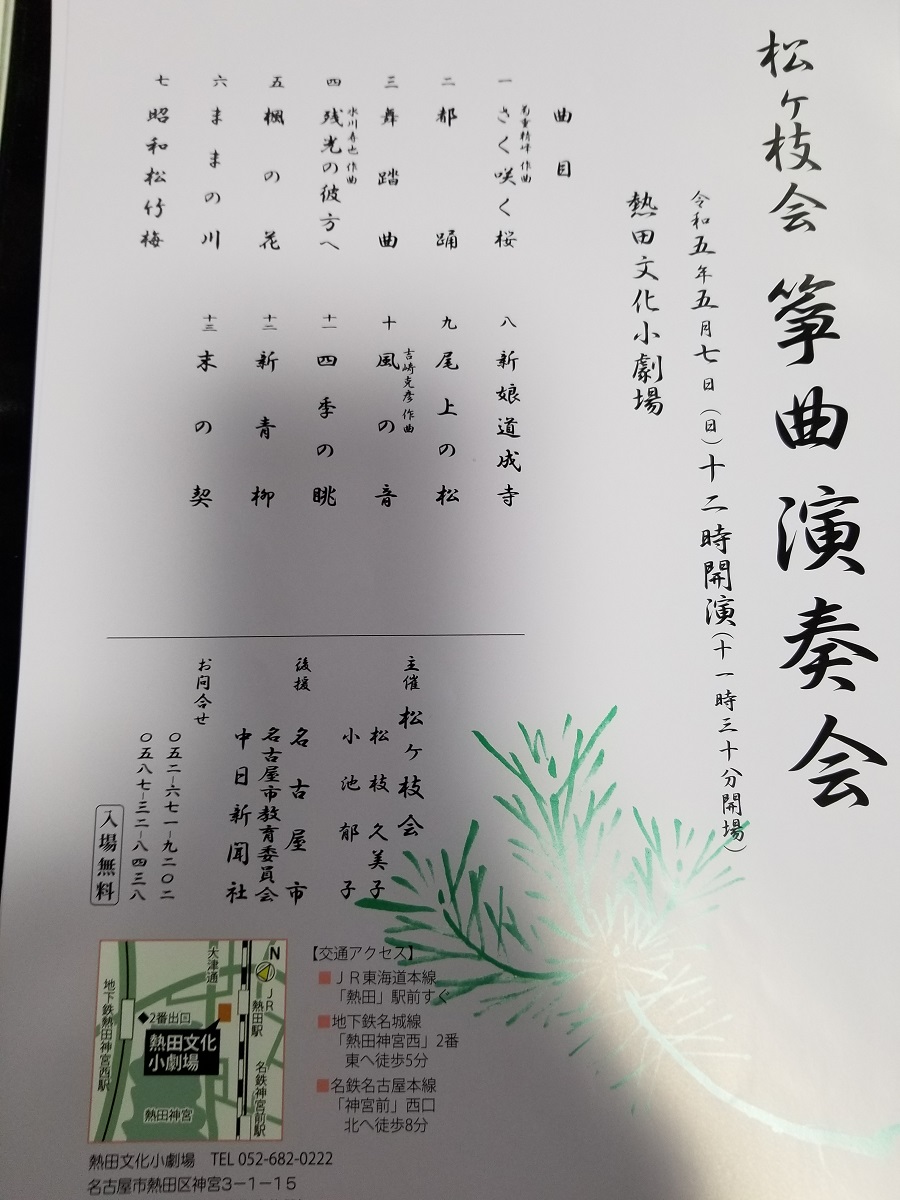 松ヶ枝会 箏曲演奏会
令和五年五月七日(日)十二時開演(十一時三十分開場)
熱田文化小劇場
曲目
菊重精峰 作曲
一 さく咲く桜
二 都踊
三 舞踏曲
水川寿也 作曲
四 残光の彼方へ
五 楓の花
六 ままの川
七 昭和松竹梅
八 新娘道成寺
九 尾上の松
吉崎克彦 作曲
十 風の音
十一 四季の眺
十二 新青柳
十三 末の契
主催 松ヶ枝会
松枝久美子
小池郁子
後援 名古屋市
名古屋市教育委員会
中日新聞社
お問合せ
〇五二-六七一-九二〇二
〇五八七-三二-八四三八
入場無料
【交通アクセス】
■JR東海道本線
「熱田」駅前すぐ
■地下鉄名城線
「熱田神宮西」2番
東へ徒歩5分
■名鉄名古屋本線
「神宮前」西口
北へ徒歩8分
N
大津通
JR熱田駅
名鉄神宮前駅
地下鉄熱田神宮西駅
◆2番出口
熱田文化
小劇場
熱田神宮
熱田文化小劇場 TEL 052-682-0222
名古屋市熱田区神宮3-1-15